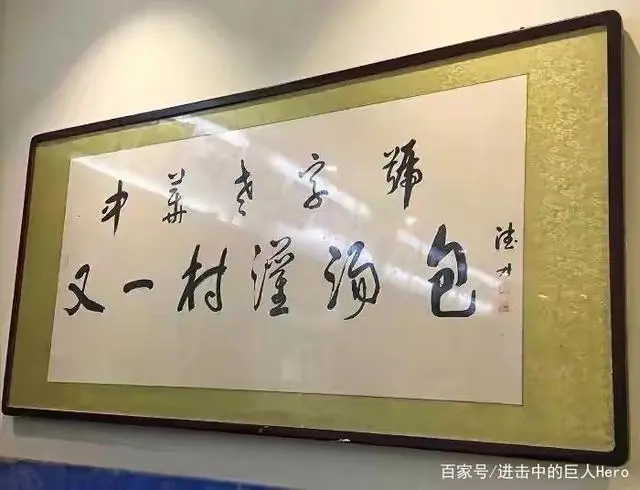 中華老字號
又一村灌湯包
德才
百家号/进击中的巨人Hero